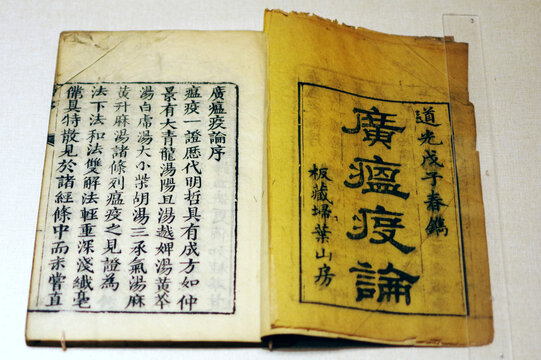 道光戊子春鐫
廣瘟疫論
板藏埽葉山房
廣瘟疫論序
瘟疫一證歷代明哲具有成方如仲
景有大青龍湯陽旦湯越婢湯黃芩
湯白虎湯大小柴胡湯三承氣湯麻
黃升麻湯諸條列瘟疫之見證為
法下法和法雙解法輕重深淺纖毫
備具特散見於諸經條中而未嘗直